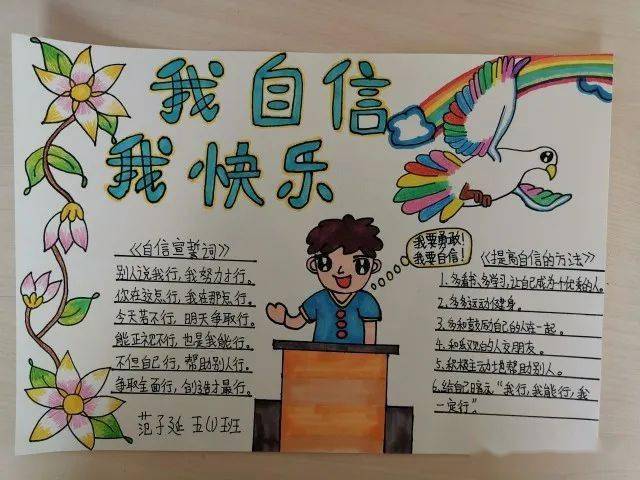 我自信
我快乐
《自信宣誓词》
别人说我行，我努力才行。
你在这点行，我在那点行。
今天若不行，明天争取行。
能正视不行，也是我能行。
不但自己行，帮助别人行。
争取全面行，创造才最行。
范子延 五(1)班
我要勇敢!
我要自信!
《提高自信的方法》
1.多看书、多学习，让自己成为十优秀的人。
2.多多运动健身。
3.多和鼓励自己的人在一起。
4.和乐观的人交朋友。
5.积极主动地帮助别人。
6.给自己暗示“我行，我能行，我
一定行”。